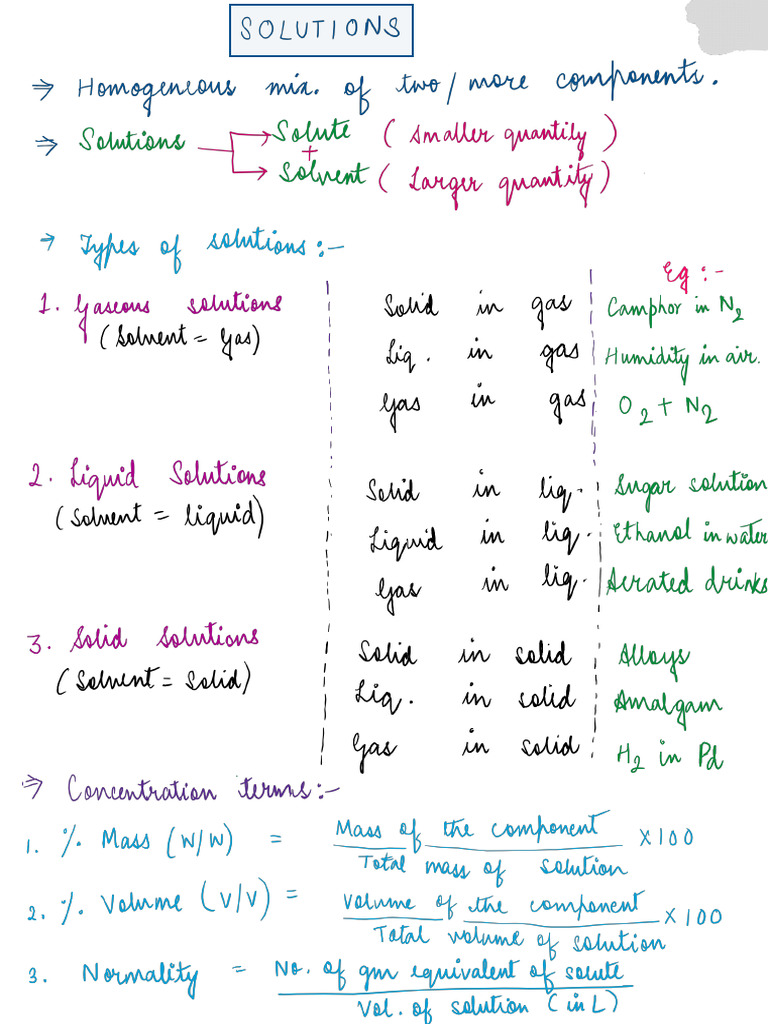 SOLUTIONS
⇒ Homogeneous mix. of two/more components.
⇒ Solutions → Solute (smaller quantity)
+
→ Solvent (larger quantity)
→ Types of solutions:-
Eg:-
1. Gaseous solutions Solid in gas Camphor in N2
(Solvent = Gas) Liq. in gas Humidity in air.
Gas in gas O2 + N2
2. Liquid Solutions Solid in liq. Sugar solution
(Solvent = liquid) Liquid in liq. Ethanol in water
Gas in liq. Aerated drinks
3. Solid Solutions Solid in solid Alloys
(Solvent = Solid) Liq. in solid Amalgam
Gas in solid H2 in Pd
⇒ Concentration terms:-
1. % Mass (W/W) = Mass of the component × 100
Total mass of solution
2. % Volume (V/V) = Volume of the component × 100
Total volume of solution
3. Normality = No. of gm equivalent of solute
Vol. of solution (in L)